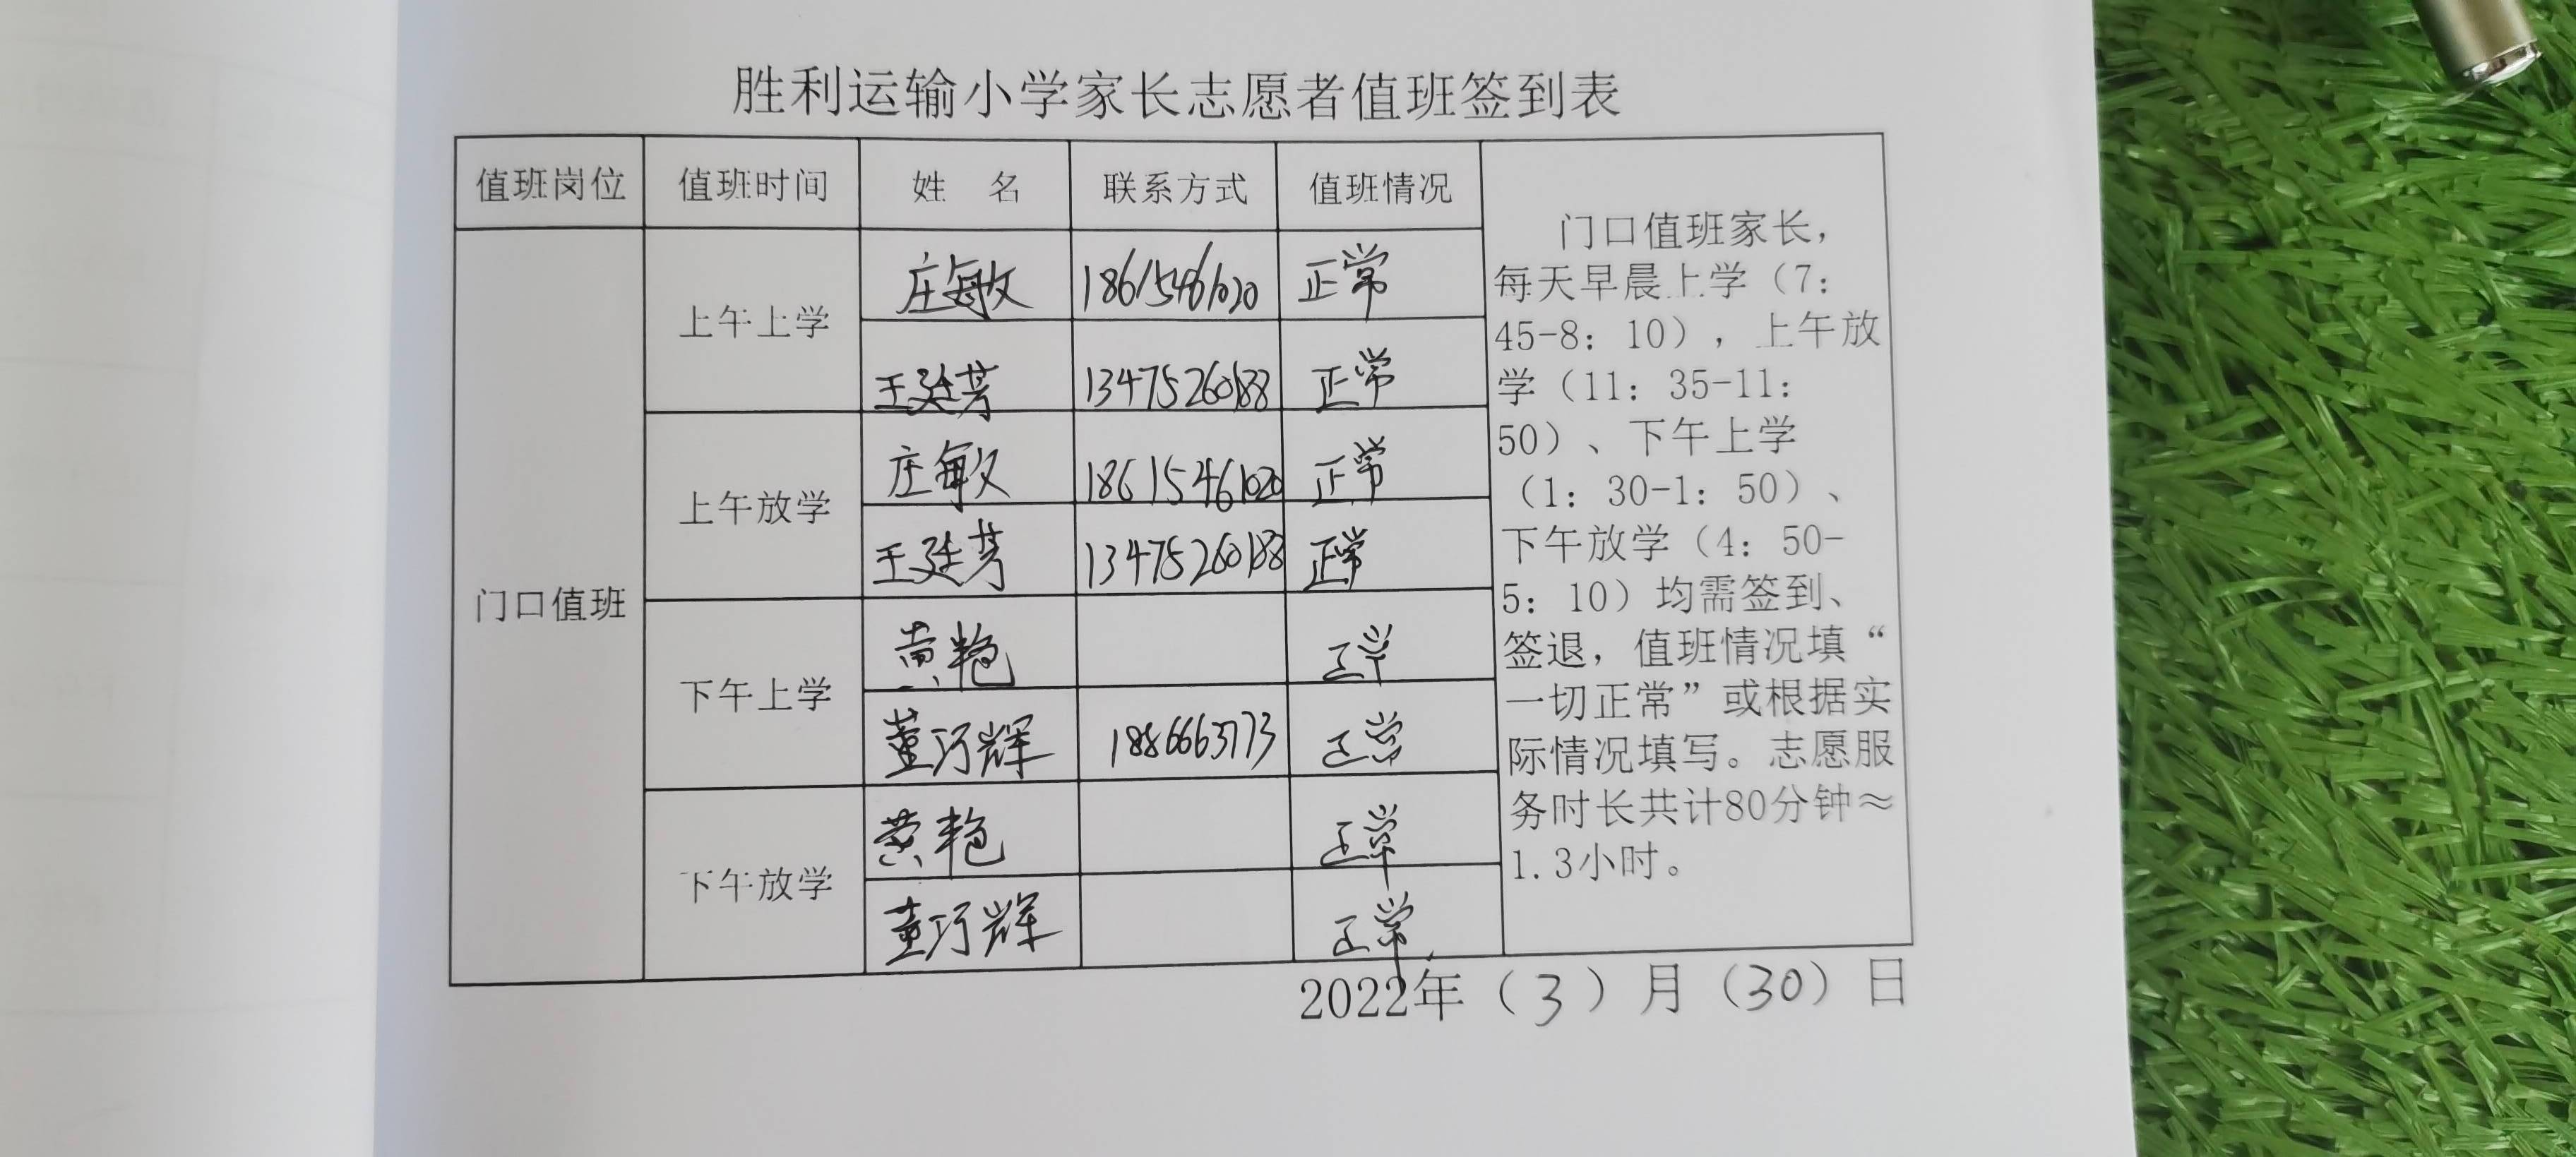 胜利运输小学家长志愿者值班签到表
值班岗位 值班时间 姓 名 联系方式 值班情况
门口值班
上午上学
庄敏 18615461020 正常
王廷芳 13475260188 正常
上午放学
庄敏 18615461020 正常
王廷芳 13475260188 正常
下午上学
黄艳 正常
董巧辉 1886663773 正常
下午放学
黄艳 正常
董巧辉 正常
门口值班家长，
每天早晨上学（7：
45-8：10），上午放
学（11：35-11：
50）、下午上学
（1：30-1：50）、
下午放学（4：50-
5：10）均需签到、
签退，值班情况填“
一切正常”或根据实
际情况填写。志愿服
务时长共计80分钟≈
1.3小时。
2022年（3）月（30）日